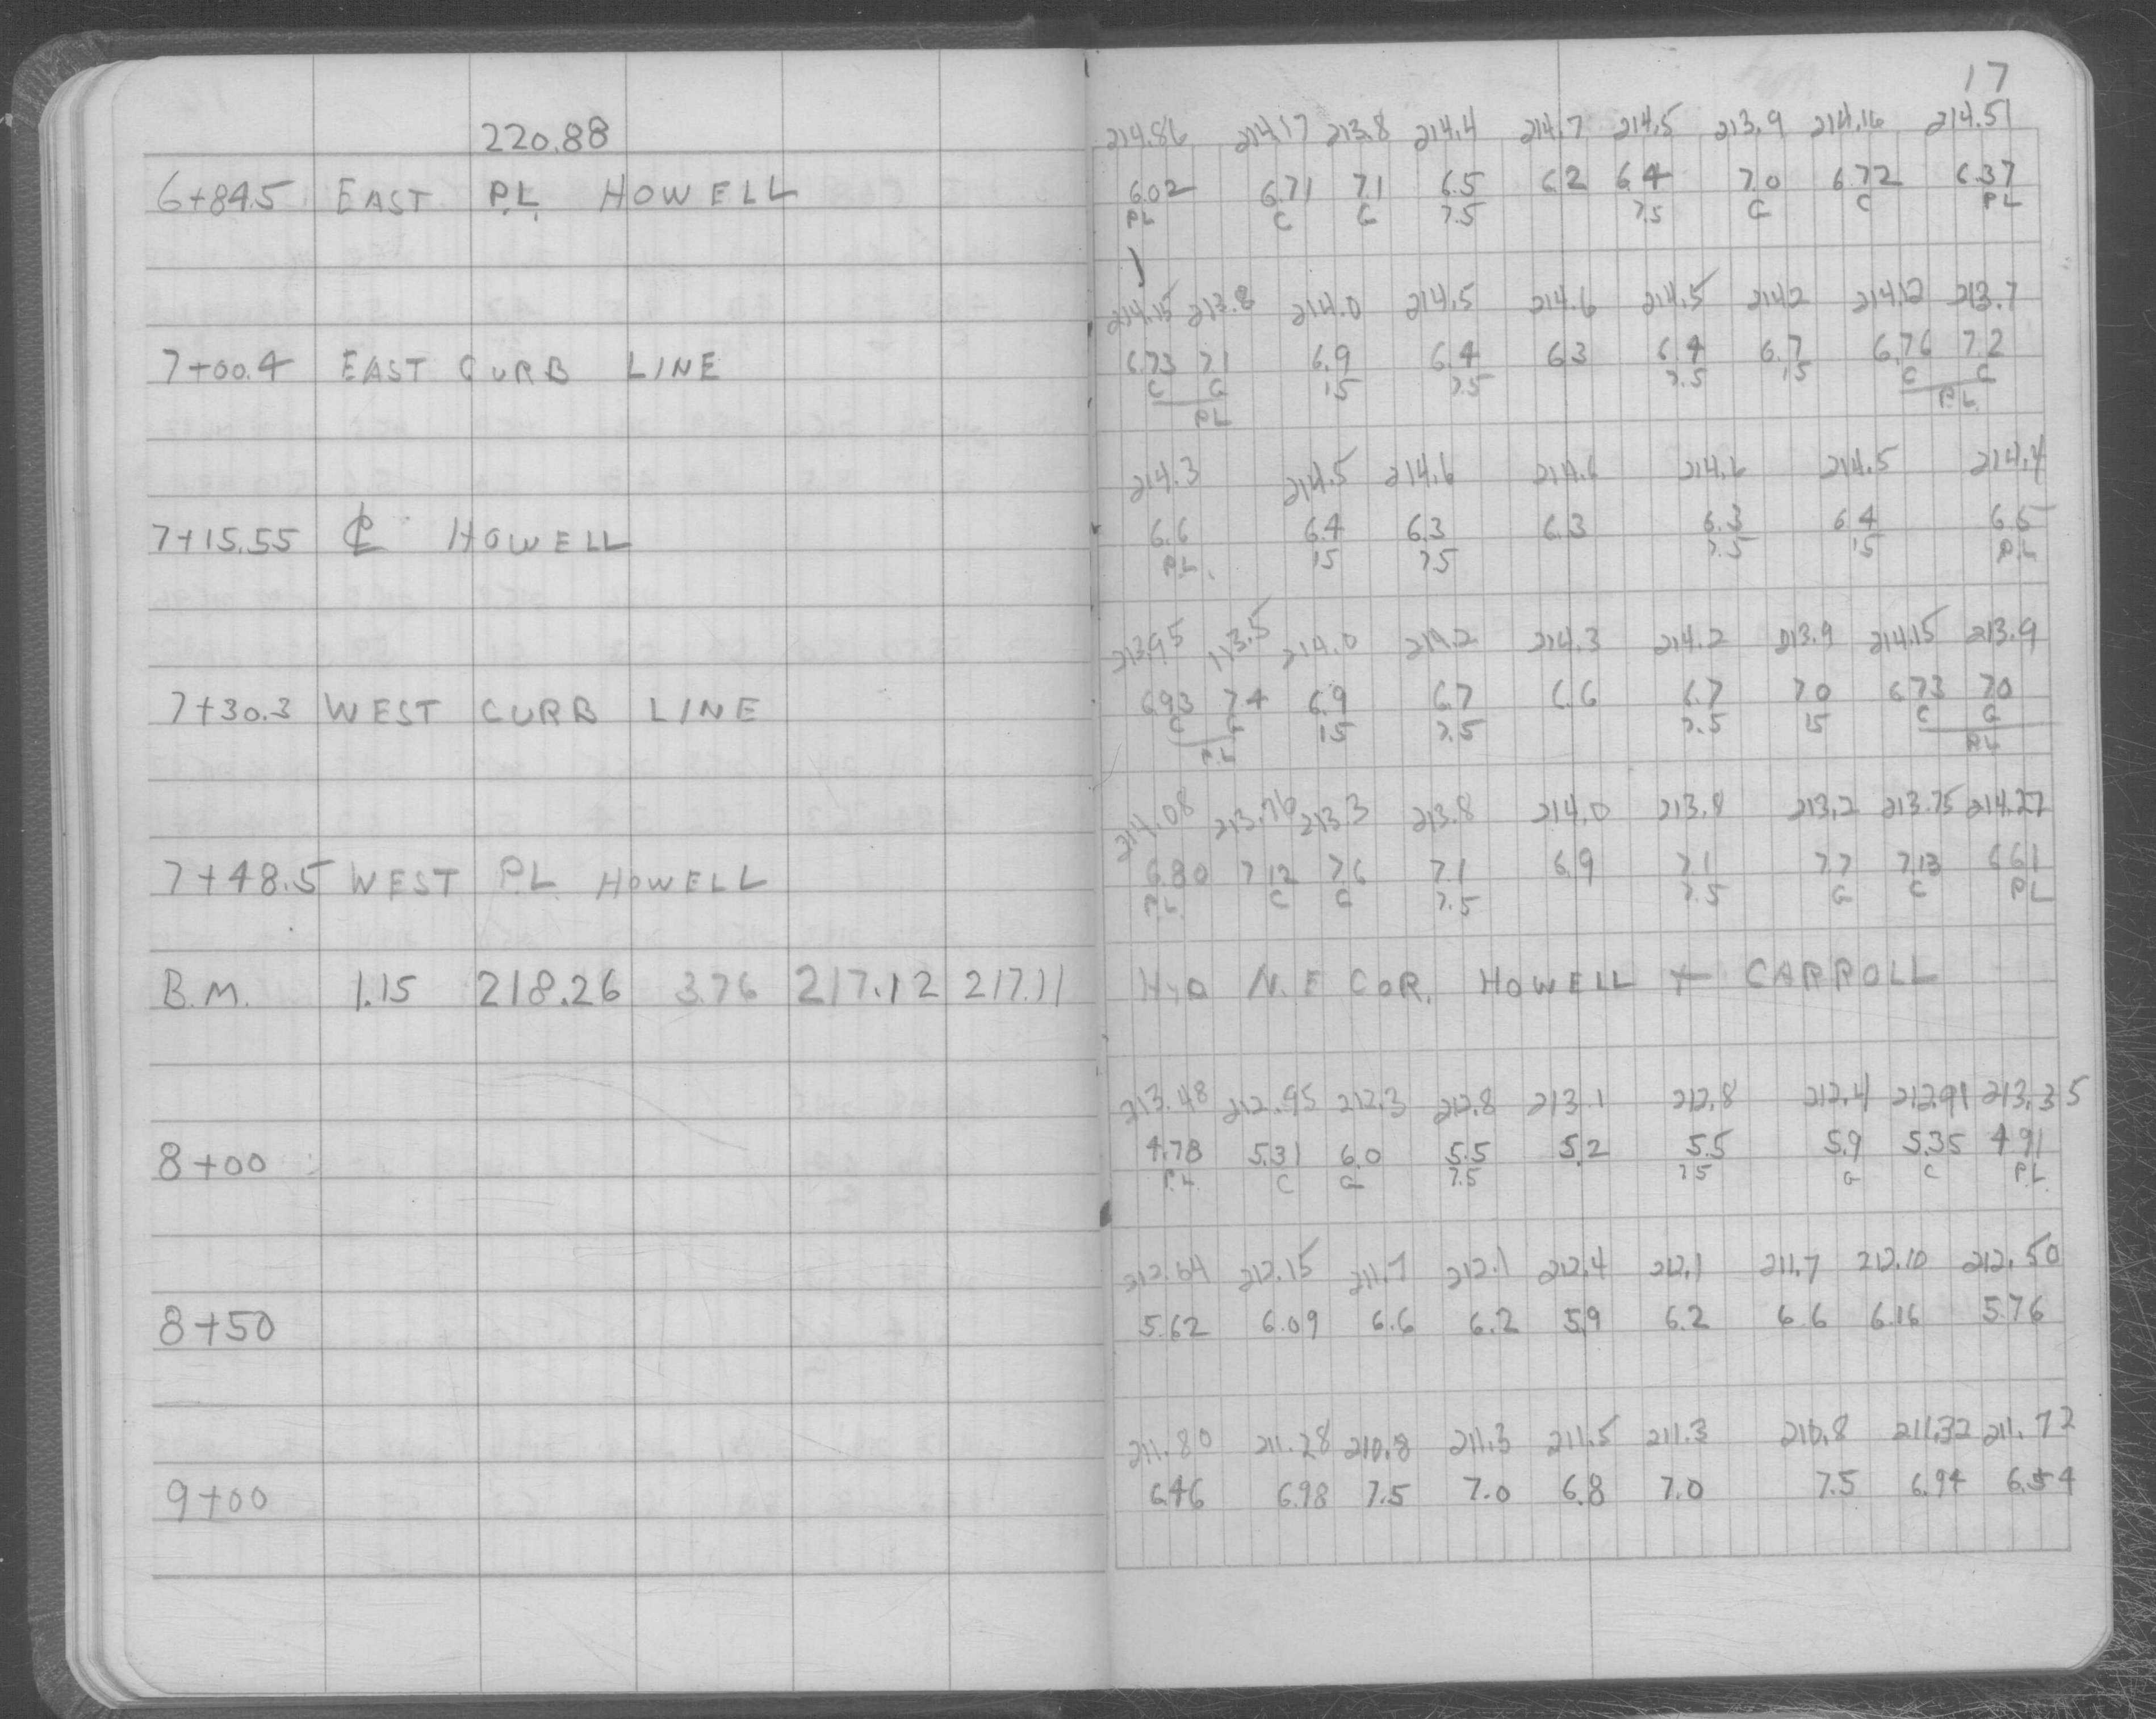 17
220.88 214.86 214.17 213.8 214.4 214.7 214.5 213.9 214.16 214.51
6+84.5 EAST P.L. HOWELL 6.02 6.71 7.1 6.5 6.2 6.4 7.0 6.72 6.37
PL C G 7.5 7.5 G C PL
214.15 213.8 214.0 214.5 214.6 214.5 214.2 214.12 213.7
7+00.4 EAST CURB LINE 6.73 7.1 6.9 6.4 6.3 6.4 6.7 6.76 7.2
C G 15 7.5 7.5 15 C G
PL P.L.
214.3 214.5 214.6 214.6 214.6 214.5 214.4
7+15.55 ℄ HOWELL 6.6 6.4 6.3 6.3 6.3 6.4 6.5
P.L. 15 7.5 7.5 15 P.L
213.95 113.5 214.0 214.2 214.3 214.2 213.9 214.15 213.9
7+30.3 WEST CURB LINE 6.93 7.4 6.9 6.7 6.6 6.7 7.0 6.73 7.0
C G 15 7.5 7.5 15 C G
P.L PL
214.08 213.76 213.3 213.8 214.0 213.8 213.2 213.75 214.27
7+48.5 WEST P.L. HOWELL 6.80 7.12 7.6 7.1 6.9 7.1 7.7 7.13 6.61
P.L. C G 7.5 7.5 G C PL
B.M. 1.15 218.26 3.76 217.12 217.11 HYD N.E COR. HOWELL + CARROLL
213.48 212.95 212.3 212.8 213.1 212.8 212.4 212.91 213.35
8+00 4.78 5.31 6.0 5.5 5.2 5.5 5.9 5.35 4.91
P.L. C G 7.5 7.5 G C P.L.
212.64 212.15 211.7 212.1 212.4 212.1 211.7 212.10 212.50
8+50 5.62 6.09 6.6 6.2 5.9 6.2 6.6 6.16 5.76
211.80 211.28 210.8 211.3 211.5 211.3 210.8 211.32 211.72
9+00 6.46 6.98 7.5 7.0 6.8 7.0 7.5 6.94 6.54